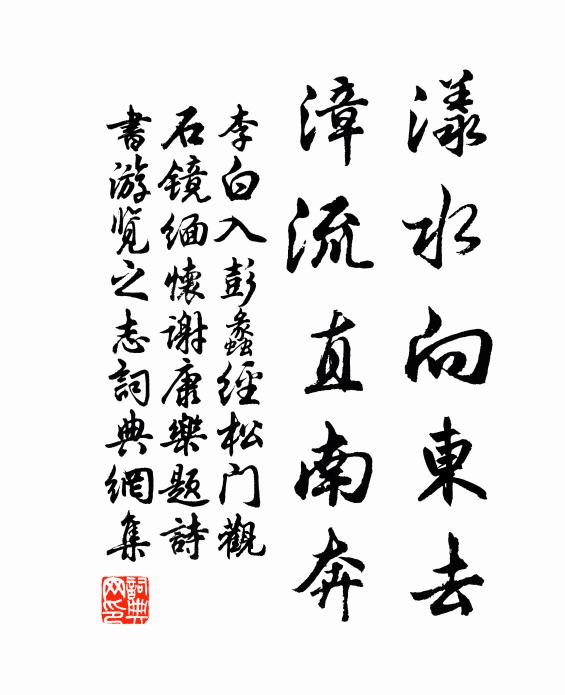 漾水向東去
漳流直南奔
李白入彭蠡經松门觀
石镜缅懷謝康樂题詩
書游览之志詞典網集